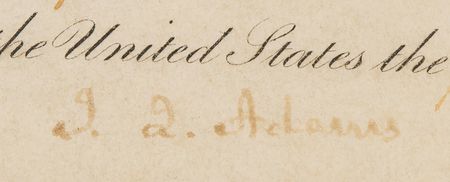 the United States the
J. Q. Adams